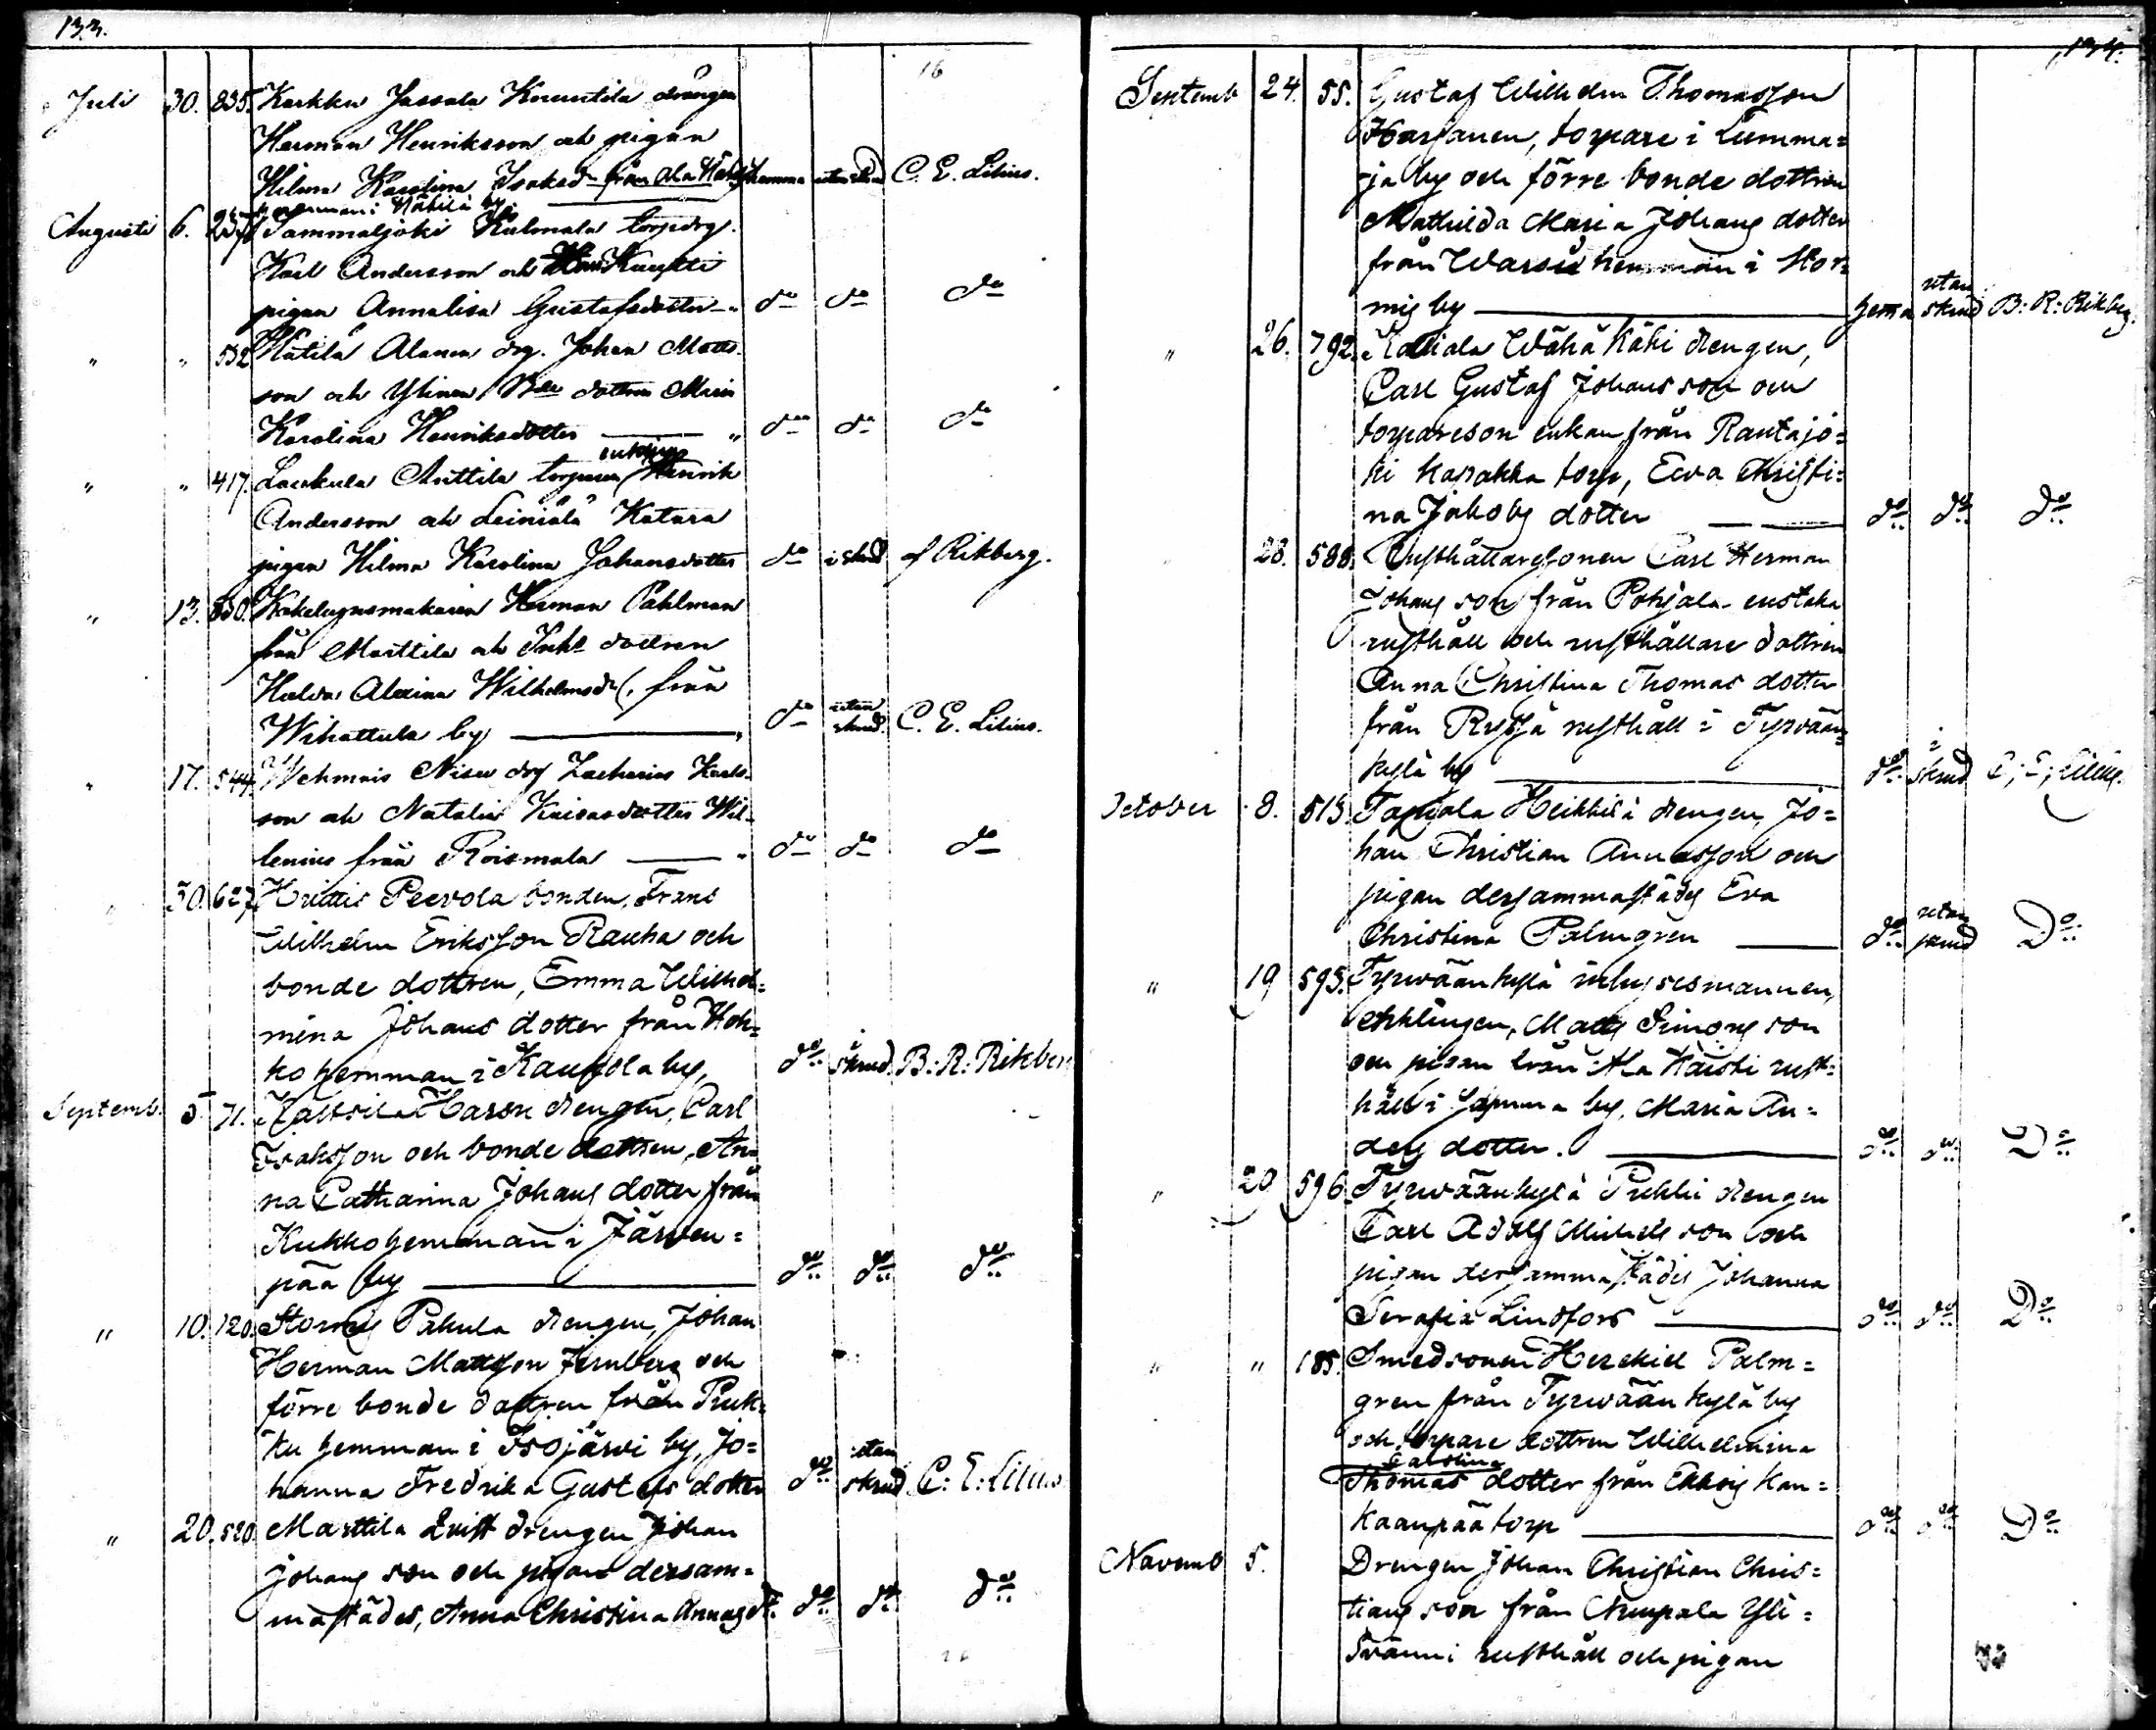 133.
Juli 30. 835. Karkku Jassala Knuutila drängen
Herman Henriksson och pigan
Hilma Karolina Isaksdr från Ala hemma utan skrud C. E. Lilius.
hemman i by
Augusti 6. 257. Sammaljoki Kulmala torpdrg.
Karl Andersson och
pigan Annalisa Gustafsdotter " do do do
" " 532 Alanen drg. Johan Matts-
son och Ylinen Bde dottren Maria
Karolina Henriksdotter " do do do
" " 417. Laukula Anttila torparen Henrik
Andersson och Leiniälä Katara
pigan Hilma Karolina Johansdotter do i skrud af Rikberg.
" 13. 830. Kakelugnsmakaren Herman Pahlman
från Marttila och Inhs dottren
Hulda Alexina Wilhelmsdr, från
Wihattula by " do utan skrud. C. E. Lilius.
" 17. 544. Wehmais Nisu drg Zacharias Karls-
son och Natalia Kaisasdotter Wil-
lenius från Roismala " do do do
" 30. 627. Peevola bonden, Frans
Wilhelm Eriksson Rauha och
bonde dottren, Emma Wilhel=
mina Johans dotter från
ko hemman i Kaukola by, do i skrud B: R: Rikber
Septemb. 5. 71. Kaltsila Haron drengen, Carl
Isaksson och bonde dottren, An=
na Catharina Johans dotter från
Kukko hemman i Järven=
pää by do do do
" 10. 120. Stormis Pakula drengen, Johan
Herman Mattsson Jernberg och
förre bonde dottren från Puk=
ku hemman i Isojärvi by, Jo=
hanna Fredrika Gustafs dotter do utan skrud C: E: Lilius
" 20. 520. Marttila Qvist drengen Johan
Johans son och pigan dersam=
mastädes, Anna Christina Annasdt. do do do
134.
Septemb 24. 55. Gustaf Wilhelm Thomasson
Harjanen, torpare i Lumma=
ja by och förre bonde dottren
Mathilda Maria Johans dotter
från Warsu hemman i Stor=
mis by hema utan skrud B: R: Rikberg.
" 26. 792. Kalliala Wähä Käki drengen,
Carl Gustaf Johansson och
torpareson enkan från Rautajo=
ki Kasakka torp, Eva Christi=
na Jakobs dotter do do do
" 28. 588. Rusthållarssonen Carl Herman
Johans son från Pohjala enstaka
rusthåll och rusthållare dottren
Anna Christina Thomas dotter
från Ryssä rusthåll i Tyrvään
kylä by do i skrud C; E; Lilius.
October 8. 515. Tapiola Heikkilä drengen, Jo=
han Christian Annasson och
pigan dersammastädes Eva
Christina Palmgren do utan skrud Do
" 19 595. Tyrvään kylä inhysesmannen,
enklingen, Matts Simons son
och pigan från Ala Häisti rust=
håll i by, Maria An=
ders dotter. do do Do
" 20 596 Tyrvään kylä Pukki drengen
Carl Adolf Michels son och
pigan dersammastädes Johanna
Serafia Lindfors do do Do
" " 185. Smedsonen Hezekiel Palm=
gren från Tyrvään kylä by
och torpare dottren Wilhelmina
Carolina
Thomas dotter från Ekksig Kan=
kaanpää torp do do Do
Novemb 5. Drengen Johan Christian Chris=
tians son från Nuupala Yli=
Svänni rusthåll och pigan